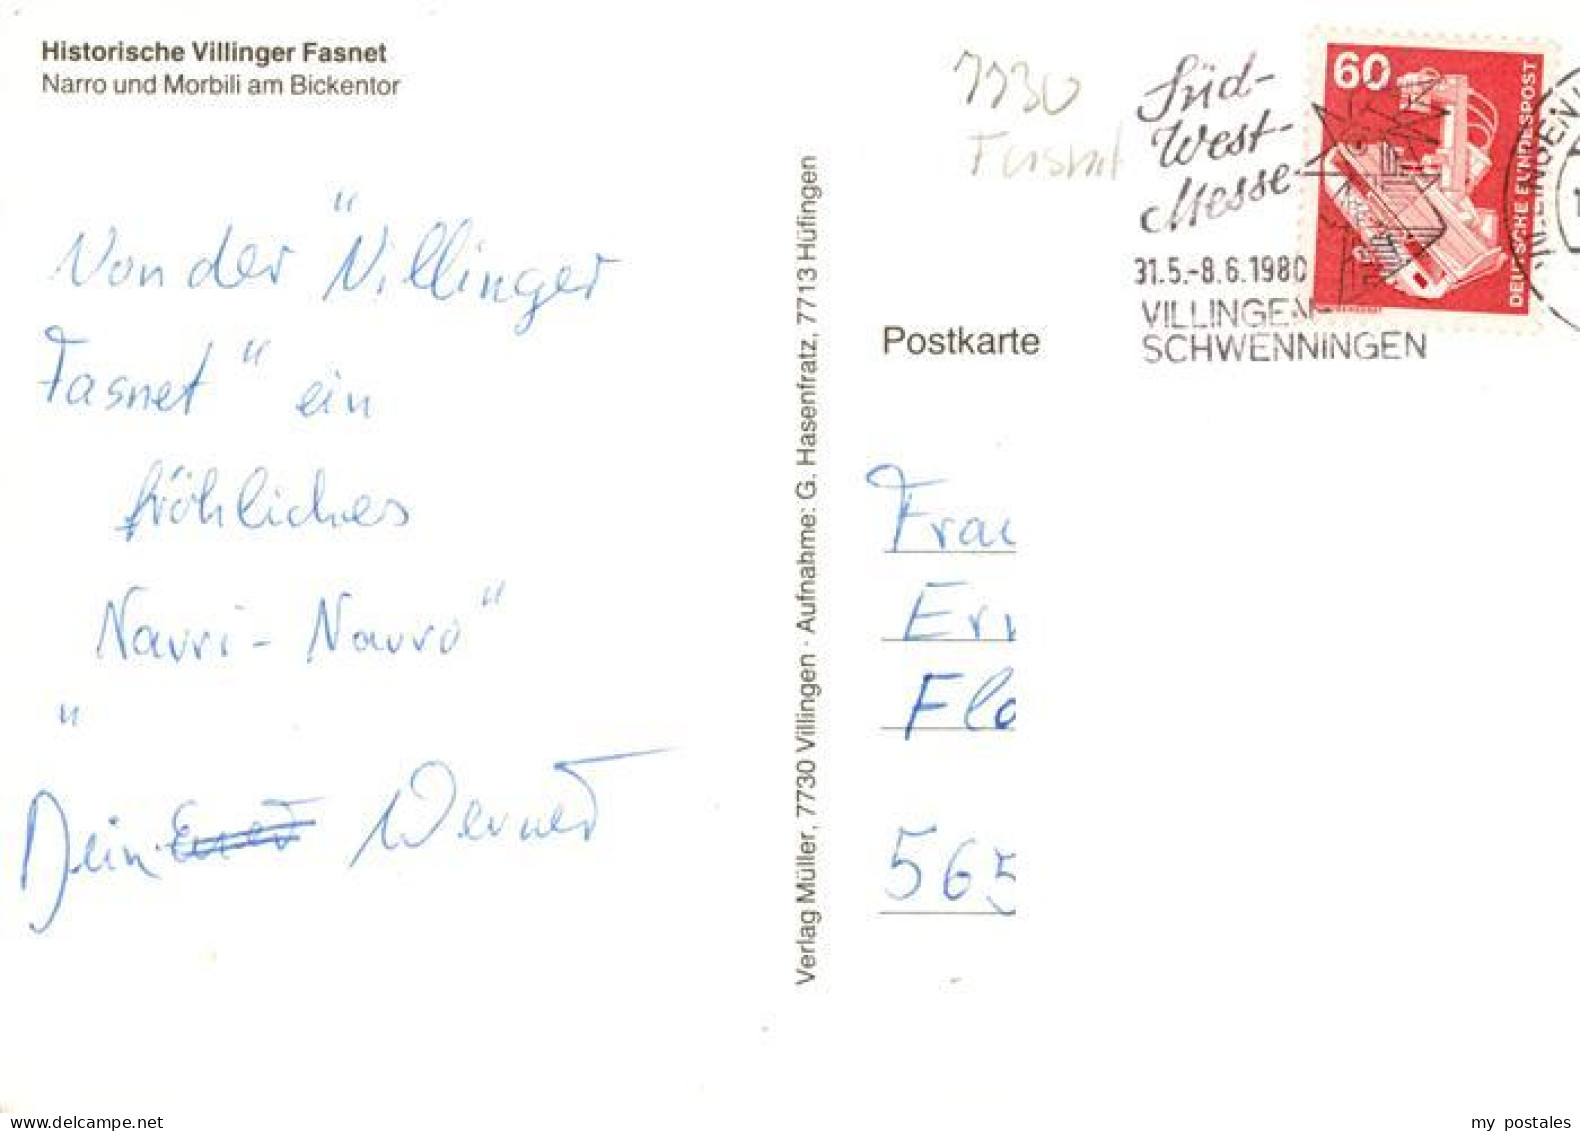 Historische Villinger Fasnet
Narro und Morbili am Bickentor
7730
Fasnet
Süd-
West-
Messe
31.5.-8.6.1980
VILLINGEN-
SCHWENNINGEN
60
DEUTSCHE BUNDESPOST
Von der "Villinger
Fasnet" ein
fröhliches
Narri- Narro"
"
Dein Werner
Verlag Müller, 7730 Villingen · Aufnahme: G. Hasenfratz, 7713 Hüfingen
Postkarte
Frau
Er
Flo
565
www.delcampe.net
my postales